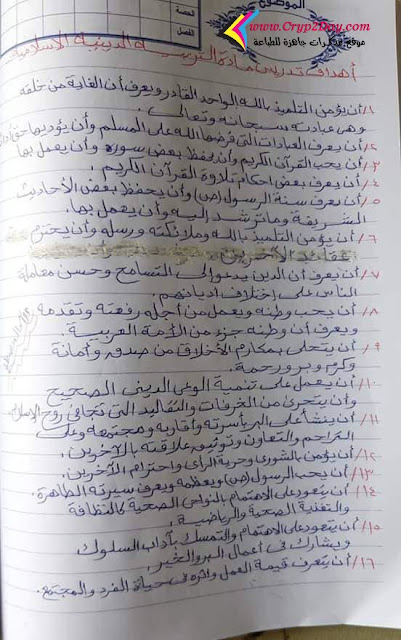 الموضوع
الحصة
الفصل
www.Cryp2Day.com
موقع مذكرات جاهزة للطباعة
أهداف تدريس مادة التربية الدينية الإسلامية
١/ أن يؤمن التلميذ بالله الواحد القادر ويعرف أن الغاية من خلقه
وهى عبادته سبحانه وتعالى.
٢/ أن يعرف العبادات التى فرضها الله على المسلم وأن يؤديها
٣/ أن يحب القرآن الكريم وأن يحفظ بعض سوره وأن يعمل بها
٤/ أن يعرف بعض أحكام تلاوة القرآن الكريم.
٥/ أن يعرف سنة الرسول (ص) وأن يحفظ بعض الأحاديث
الشريفة وما ترشد إليه وأن يعمل بها.
٦/ أن يؤمن التلميذ بالله وملائكته ورسله وأن يحترم
عقائد الآخرين
٧/ أن يعرف أن الدين يدعو إلى التسامح وحسن معاملة
الناس على إختلاف أديانهم.
٨/ أن يحب وطنه ويعمل من أجل رفعته وتقدمه
ويعرف أن وطنه جزء من الأمة العربية.
٩/ أن يتحلى بمكارم الأخلاق من صدق وأمانة
وكرم وبر ورحمة.
١٠/ أن يعمل على تنمية الوعى الدينى الصحيح
وأن يتحرى من الخرفات والتقاليد التى تجافى روح الإسلام
١١/ أن ينشأ على البر بأسرته وأقاربه ومجتمعه وعلى
التراحم والتعاون وتوثيق علاقته بالآخرين.
١٢/ أن يؤمن بالشورى وحرية الرأى واحترام الآخرين.
١٣/ أن يحب الرسول (ص) ويعظمه ويعرف سيرته الطاهرة.
١٤/ أن يتعود على الاهتمام بالنواحى الصحية كالنظافة
والتغذية الصحية والرياضية.
١٥/ أن يتعود على الاهتمام والتمسك بآداب السلوك
ويشارك فى أعمال البر والخير.
١٦/ أن يتعرف قيمة العمل وأثره فى حياة الفرد والمجتمع.